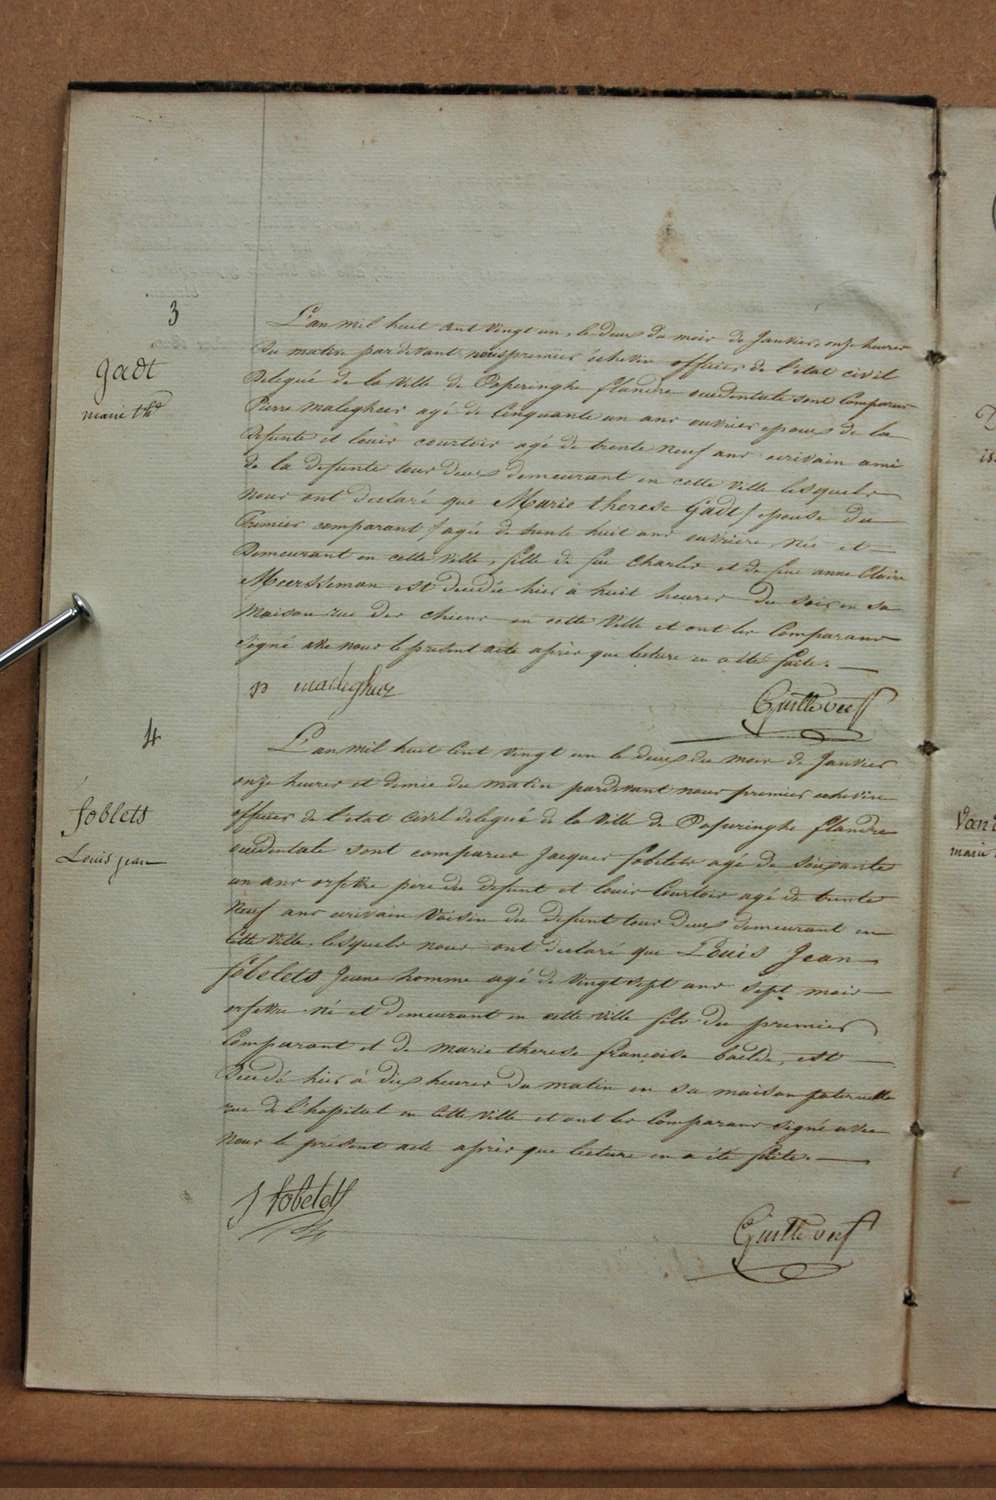 3
Gadt
marie thé
L'an mil huit cent vingt un, le deux du mois de Janvier, onze heures
du matin pardevant nous premier échevin officier de l'etat civil
Delegué de la Ville de Poperinghe flandre occidentale sont Comparus
Pierre Malegheer agé de Cinquante un ans ouvrier epoux de la
Defunte et louis courtois agé de trente neuf ans ecrivain ami
de la defunte tous deux demeurant en cette ville lesquels
nous ont declaré que Marie therese Gadt / epouse du
Premier comparant / agée de trente huit ans ouvriere, née et
Demeurant en cette Ville, fille de feu Charles et de feue anne Claire
Meersseman est decedée hier à huit heures du soir en sa
Maison rue des chiens en cette Ville et ont les Comparans
signé avec nous le present acte après que lecture en a été faite.
p malegheer
Guillevoef
4
foblets
Louis jean
L'an mil huit Cent vingt un le deux du mois de Janvier
onze heures et demie du matin pardevant nous premier echevin
officier de l'etat Civil delegué de la Ville de Poperinghe flandre
occidentale sont comparus Jacques fobelets agé de soixante
un ans orfevre pere du defunt et louis Courtois agé de trente
Neuf ans ecrivain Voisin du defunt tous deux demeurant en
Cette Ville, lesquels nous ont declaré que Louis Jean
fobelets Jeune homme agé de Vingt sept ans sept mois
orfevre né et demeurant en cette ville fils du premier
Comparant et de marie therese françoise baelde, est
Decedé hier à dix heures du matin en sa maison paternelle
rue de l'hopital en Cette Ville et ont les Comparans signé avec
Nous le présent acte après que lecture en a été faite.
J fobelets
Guillevoef